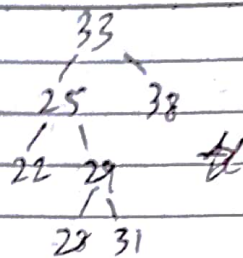 33
25 38
22 29
28 31